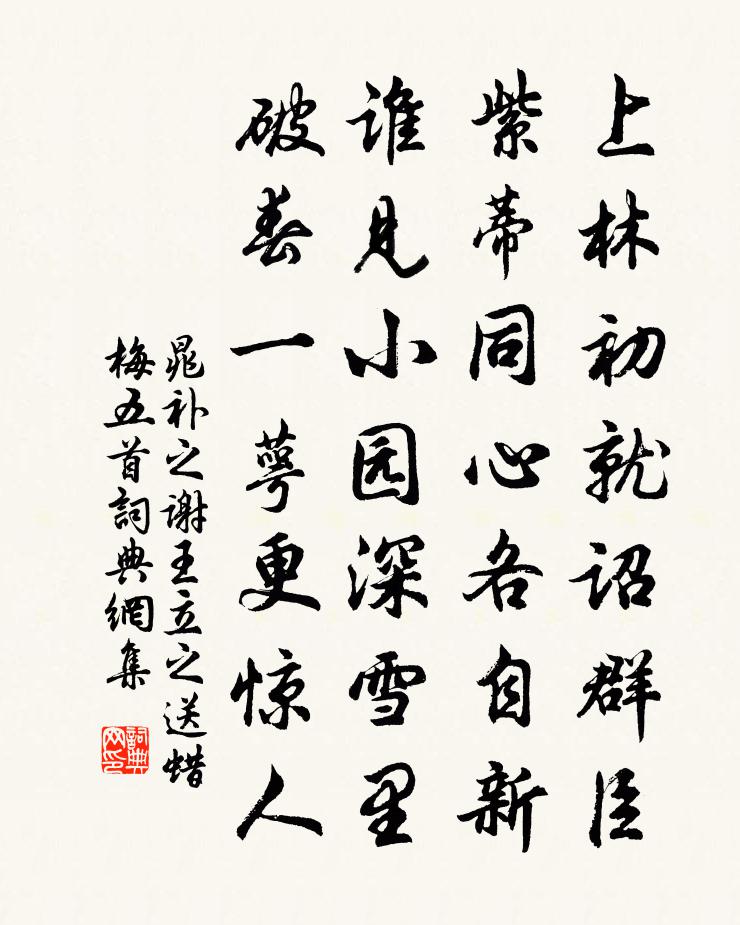 上林初就诏群臣
紫蒂同心各自新
谁见小园深雪里
破春一萼更惊人
晁补之谢王立之送蜡
梅五首詞典網集
詞典网印